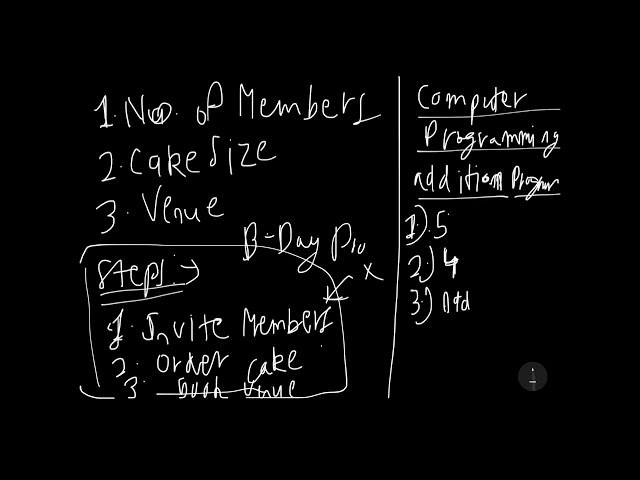 1. No. of Members
2. Cake Size
3. Venue
B-Day Pro
Steps:->
1. Invite Members
2. Order Cake
3. Book Venue
x
Computer
Programming
addition Program
1) 5
2) 4
3) Add